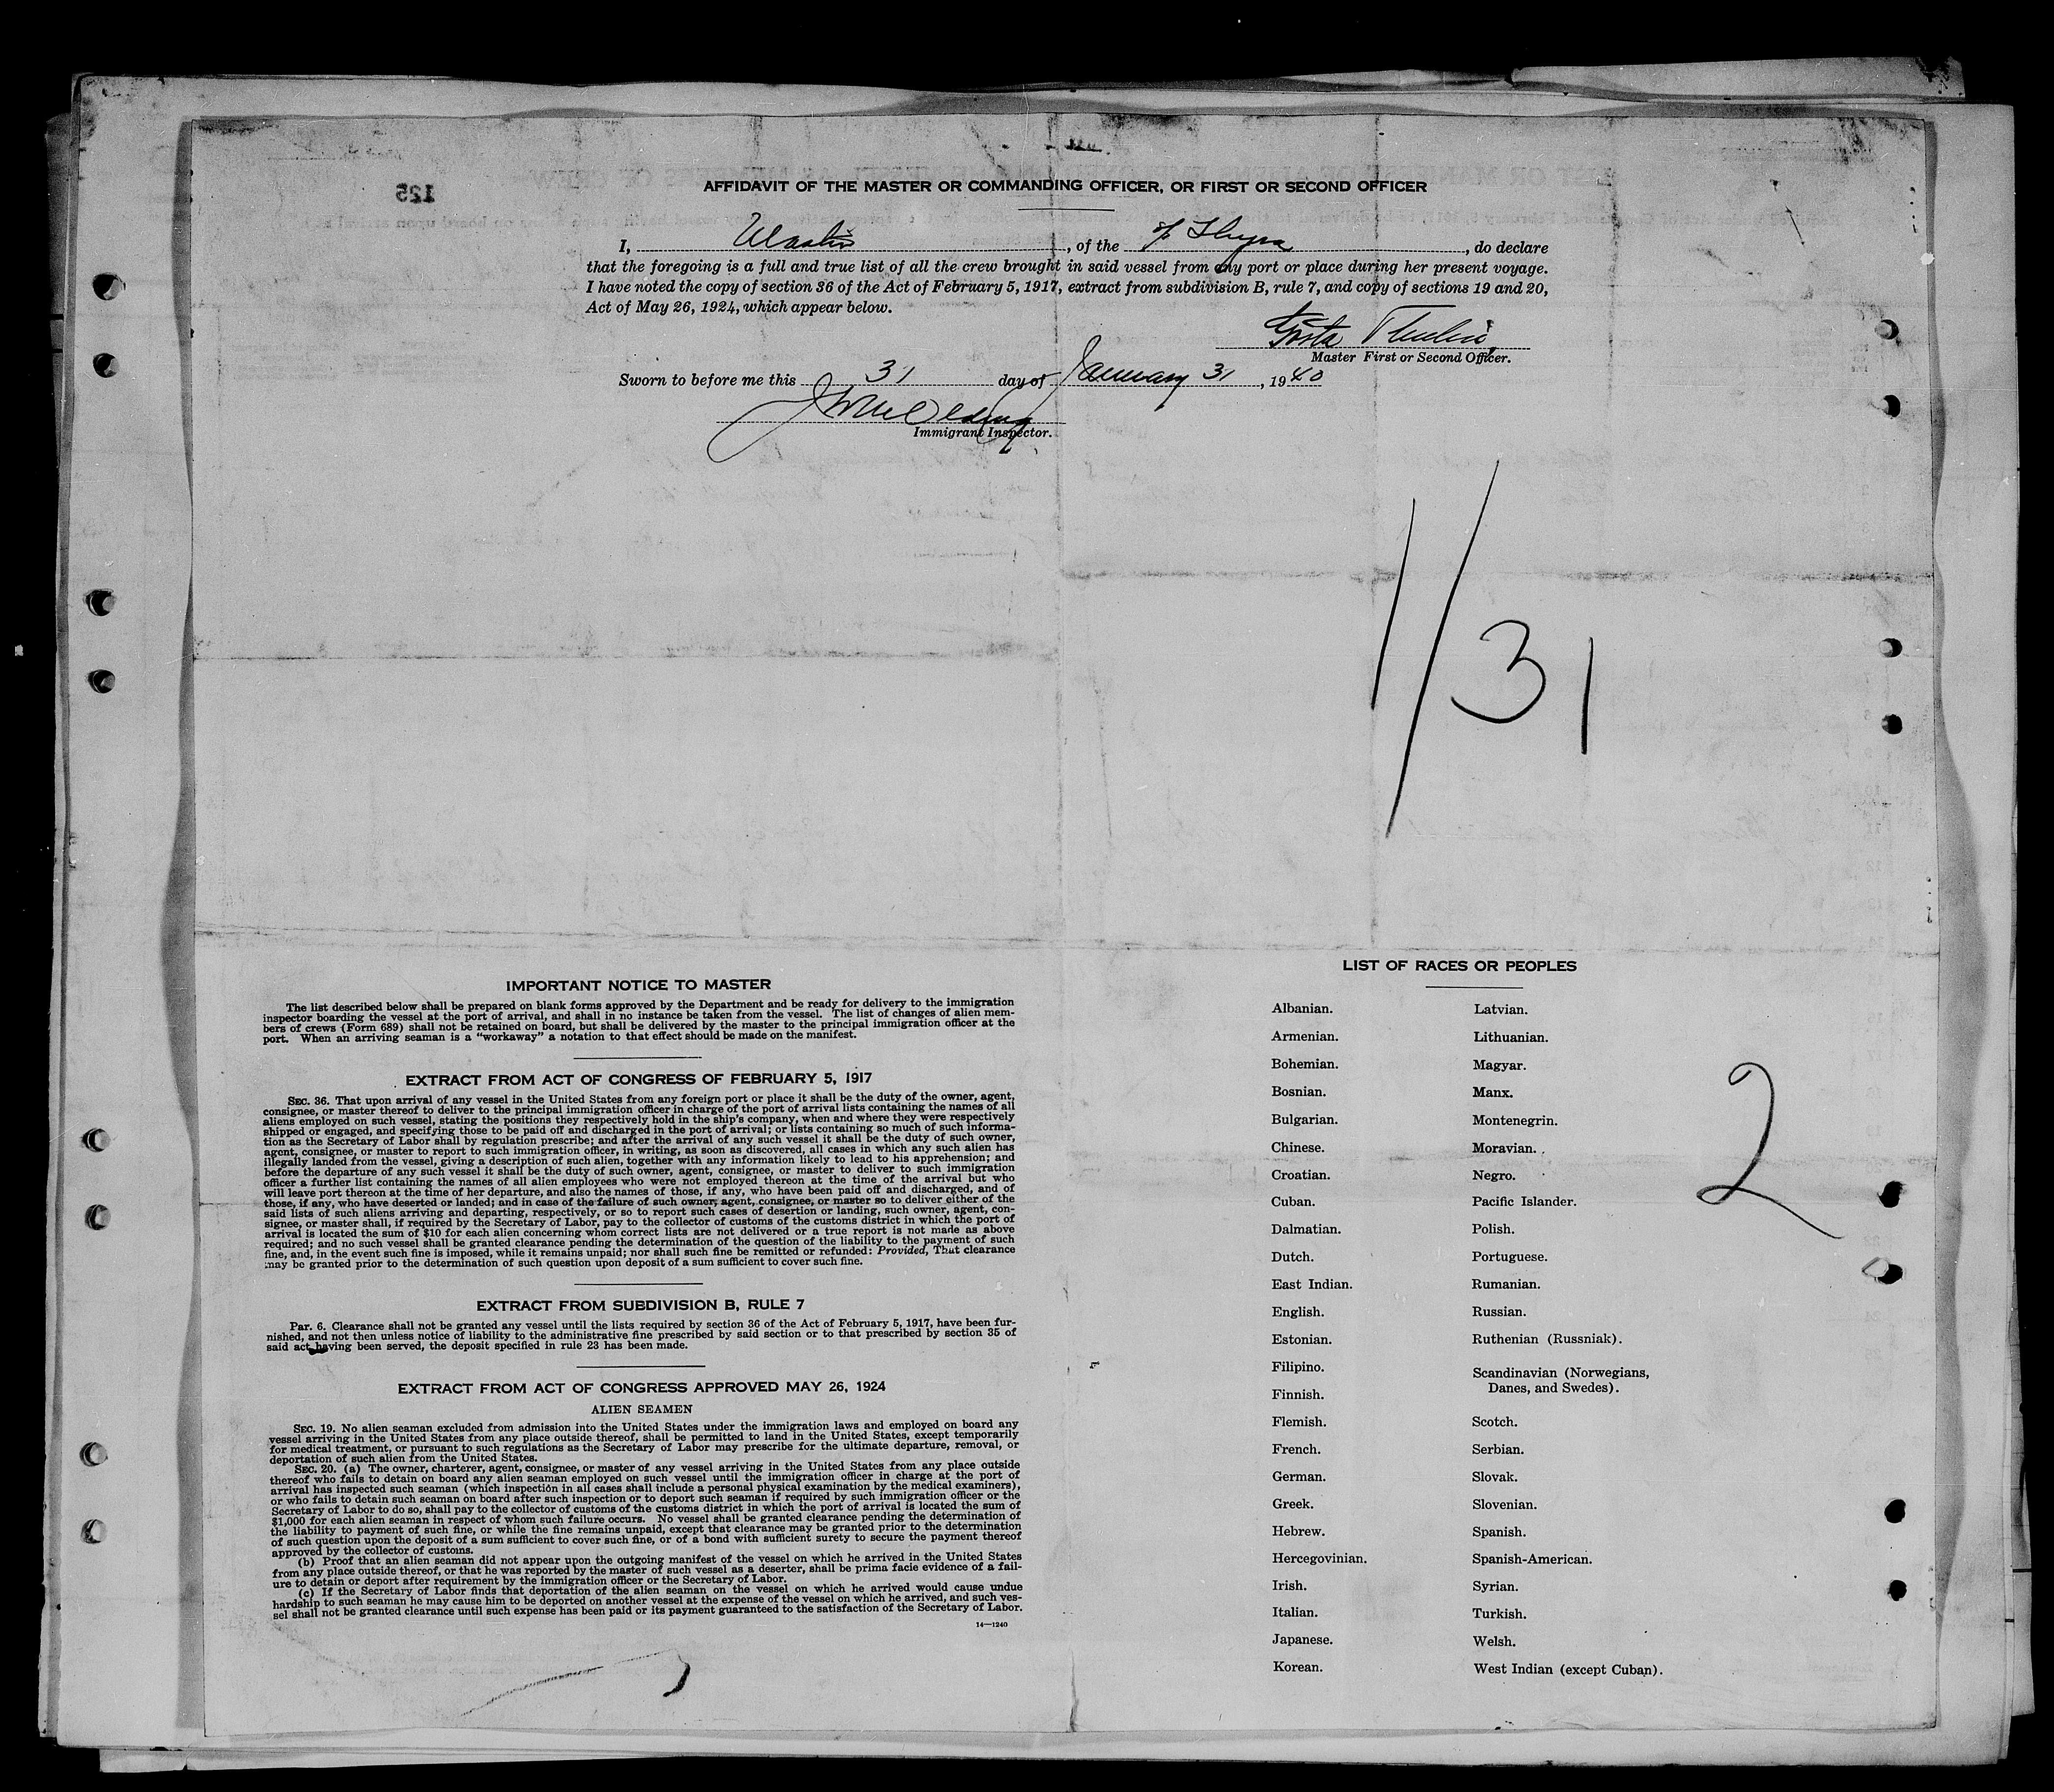 125
AFFIDAVIT OF THE MASTER OR COMMANDING OFFICER, OR FIRST OR SECOND OFFICER
I, Master, of the Thyra, do declare
that the foregoing is a full and true list of all the crew brought in said vessel from any port or place during her present voyage.
I have noted the copy of section 36 of the Act of February 5, 1917, extract from subdivision B, rule 7, and copy of sections 19 and 20,
Act of May 26, 1924, which appear below.
Gösta Thulin
Master First or Second Officer.
Sworn to before me this 31 day of January 31, 1940
Immigrant Inspector.
1/31
IMPORTANT NOTICE TO MASTER
The list described below shall be prepared on blank forms approved by the Department and be ready for delivery to the immigration
inspector boarding the vessel at the port of arrival, and shall in no instance be taken from the vessel. The list of changes of alien mem-
bers of crews (Form 689) shall not be retained on board, but shall be delivered by the master to the principal immigration officer at the
port. When an arriving seaman is a "workaway" a notation to that effect should be made on the manifest.
EXTRACT FROM ACT OF CONGRESS OF FEBRUARY 5, 1917
SEC. 36. That upon arrival of any vessel in the United States from any foreign port or place it shall be the duty of the owner, agent,
consignee, or master thereof to deliver to the principal immigration officer in charge of the port of arrival lists containing the names of all
aliens employed on such vessel, stating the positions they respectively hold in the ship's company, when and where they were respectively
shipped or engaged, and specifying those to be paid off and discharged in the port of arrival; or lists containing so much of such informa-
tion as the Secretary of Labor shall by regulation prescribe; and after the arrival of any such vessel it shall be the duty of such owner,
agent, consignee, or master to report to such immigration officer, in writing, as soon as discovered, all cases in which any such alien has
illegally landed from the vessel, giving a description of such alien, together with any information likely to lead to his apprehension; and
before the departure of any such vessel it shall be the duty of such owner, agent, consignee, or master to deliver to such immigration
officer a further list containing the names of all alien employees who were not employed thereon at the time of the arrival but who
will leave port thereon at the time of her departure, and also the names of those, if any, who have been paid off and discharged, and of
those, if any, who have deserted or landed; and in case of the failure of such owner, agent, consignee, or master so to deliver either of the
said lists of such aliens arriving and departing, respectively, or so to report such cases of desertion or landing, such owner, agent, con-
signee, or master shall, if required by the Secretary of Labor, pay to the collector of customs of the customs district in which the port of
arrival is located the sum of $10 for each alien concerning whom correct lists are not delivered or a true report is not made as above
required; and no such vessel shall be granted clearance pending the determination of the question of the liability to the payment of such
fine, and, in the event such fine is imposed, while it remains unpaid; nor shall such fine be remitted or refunded: Provided, That clearance
may be granted prior to the determination of such question upon deposit of a sum sufficient to cover such fine.
EXTRACT FROM SUBDIVISION B, RULE 7
Par. 6. Clearance shall not be granted any vessel until the lists required by section 36 of the Act of February 5, 1917, have been fur-
nished, and not then unless notice of liability to the administrative fine prescribed by said section or to that prescribed by section 35 of
said act having been served, the deposit specified in rule 23 has been made.
EXTRACT FROM ACT OF CONGRESS APPROVED MAY 26, 1924
ALIEN SEAMEN
SEC. 19. No alien seaman excluded from admission into the United States under the immigration laws and employed on board any
vessel arriving in the United States from any place outside thereof, shall be permitted to land in the United States, except temporarily
for medical treatment, or pursuant to such regulations as the Secretary of Labor may prescribe for the ultimate departure, removal, or
deportation of such alien from the United States.
SEC. 20. (a) The owner, charterer, agent, consignee, or master of any vessel arriving in the United States from any place outside
thereof who fails to detain on board any alien seaman employed on such vessel until the immigration officer in charge at the port of
arrival has inspected such seaman (which inspection in all cases shall include a personal physical examination by the medical examiners),
or who fails to detain such seaman on board after such inspection or to deport such seaman if required by such immigration officer or the
Secretary of Labor to do so, shall pay to the collector of customs of the customs district in which the port of arrival is located the sum of
$1,000 for each alien seaman in respect of whom such failure occurs. No vessel shall be granted clearance pending the determination of
the liability to payment of such fine, or while the fine remains unpaid, except that clearance may be granted prior to the determination
of such question upon the deposit of a sum sufficient to cover such fine, or of a bond with sufficient surety to secure the payment thereof
approved by the collector of customs.
(b) Proof that an alien seaman did not appear upon the outgoing manifest of the vessel on which he arrived in the United States
from any place outside thereof, or that he was reported by the master of such vessel as a deserter, shall be prima facie evidence of a fail-
ure to detain or deport after requirement by the immigration officer or the Secretary of Labor.
(c) If the Secretary of Labor finds that deportation of the alien seaman on the vessel on which he arrived would cause undue
hardship to such seaman he may cause him to be deported on another vessel at the expense of the vessel on which he arrived, and such ves-
sel shall not be granted clearance until such expense has been paid or its payment guaranteed to the satisfaction of the Secretary of Labor.
14—1240
LIST OF RACES OR PEOPLES
Albanian.
Armenian.
Bohemian.
Bosnian.
Bulgarian.
Chinese.
Croatian.
Cuban.
Dalmatian.
Dutch.
East Indian.
English.
Estonian.
Filipino.
Finnish.
Flemish.
French.
German.
Greek.
Hebrew.
Hercegovinian.
Irish.
Italian.
Japanese.
Korean.
Latvian.
Lithuanian.
Magyar.
Manx.
Montenegrin.
Moravian.
Negro.
Pacific Islander.
Polish.
Portuguese.
Rumanian.
Russian.
Ruthenian (Russniak).
Scandinavian (Norwegians,
Danes, and Swedes).
Scotch.
Serbian.
Slovak.
Slovenian.
Spanish.
Spanish-American.
Syrian.
Turkish.
Welsh.
West Indian (except Cuban).
2